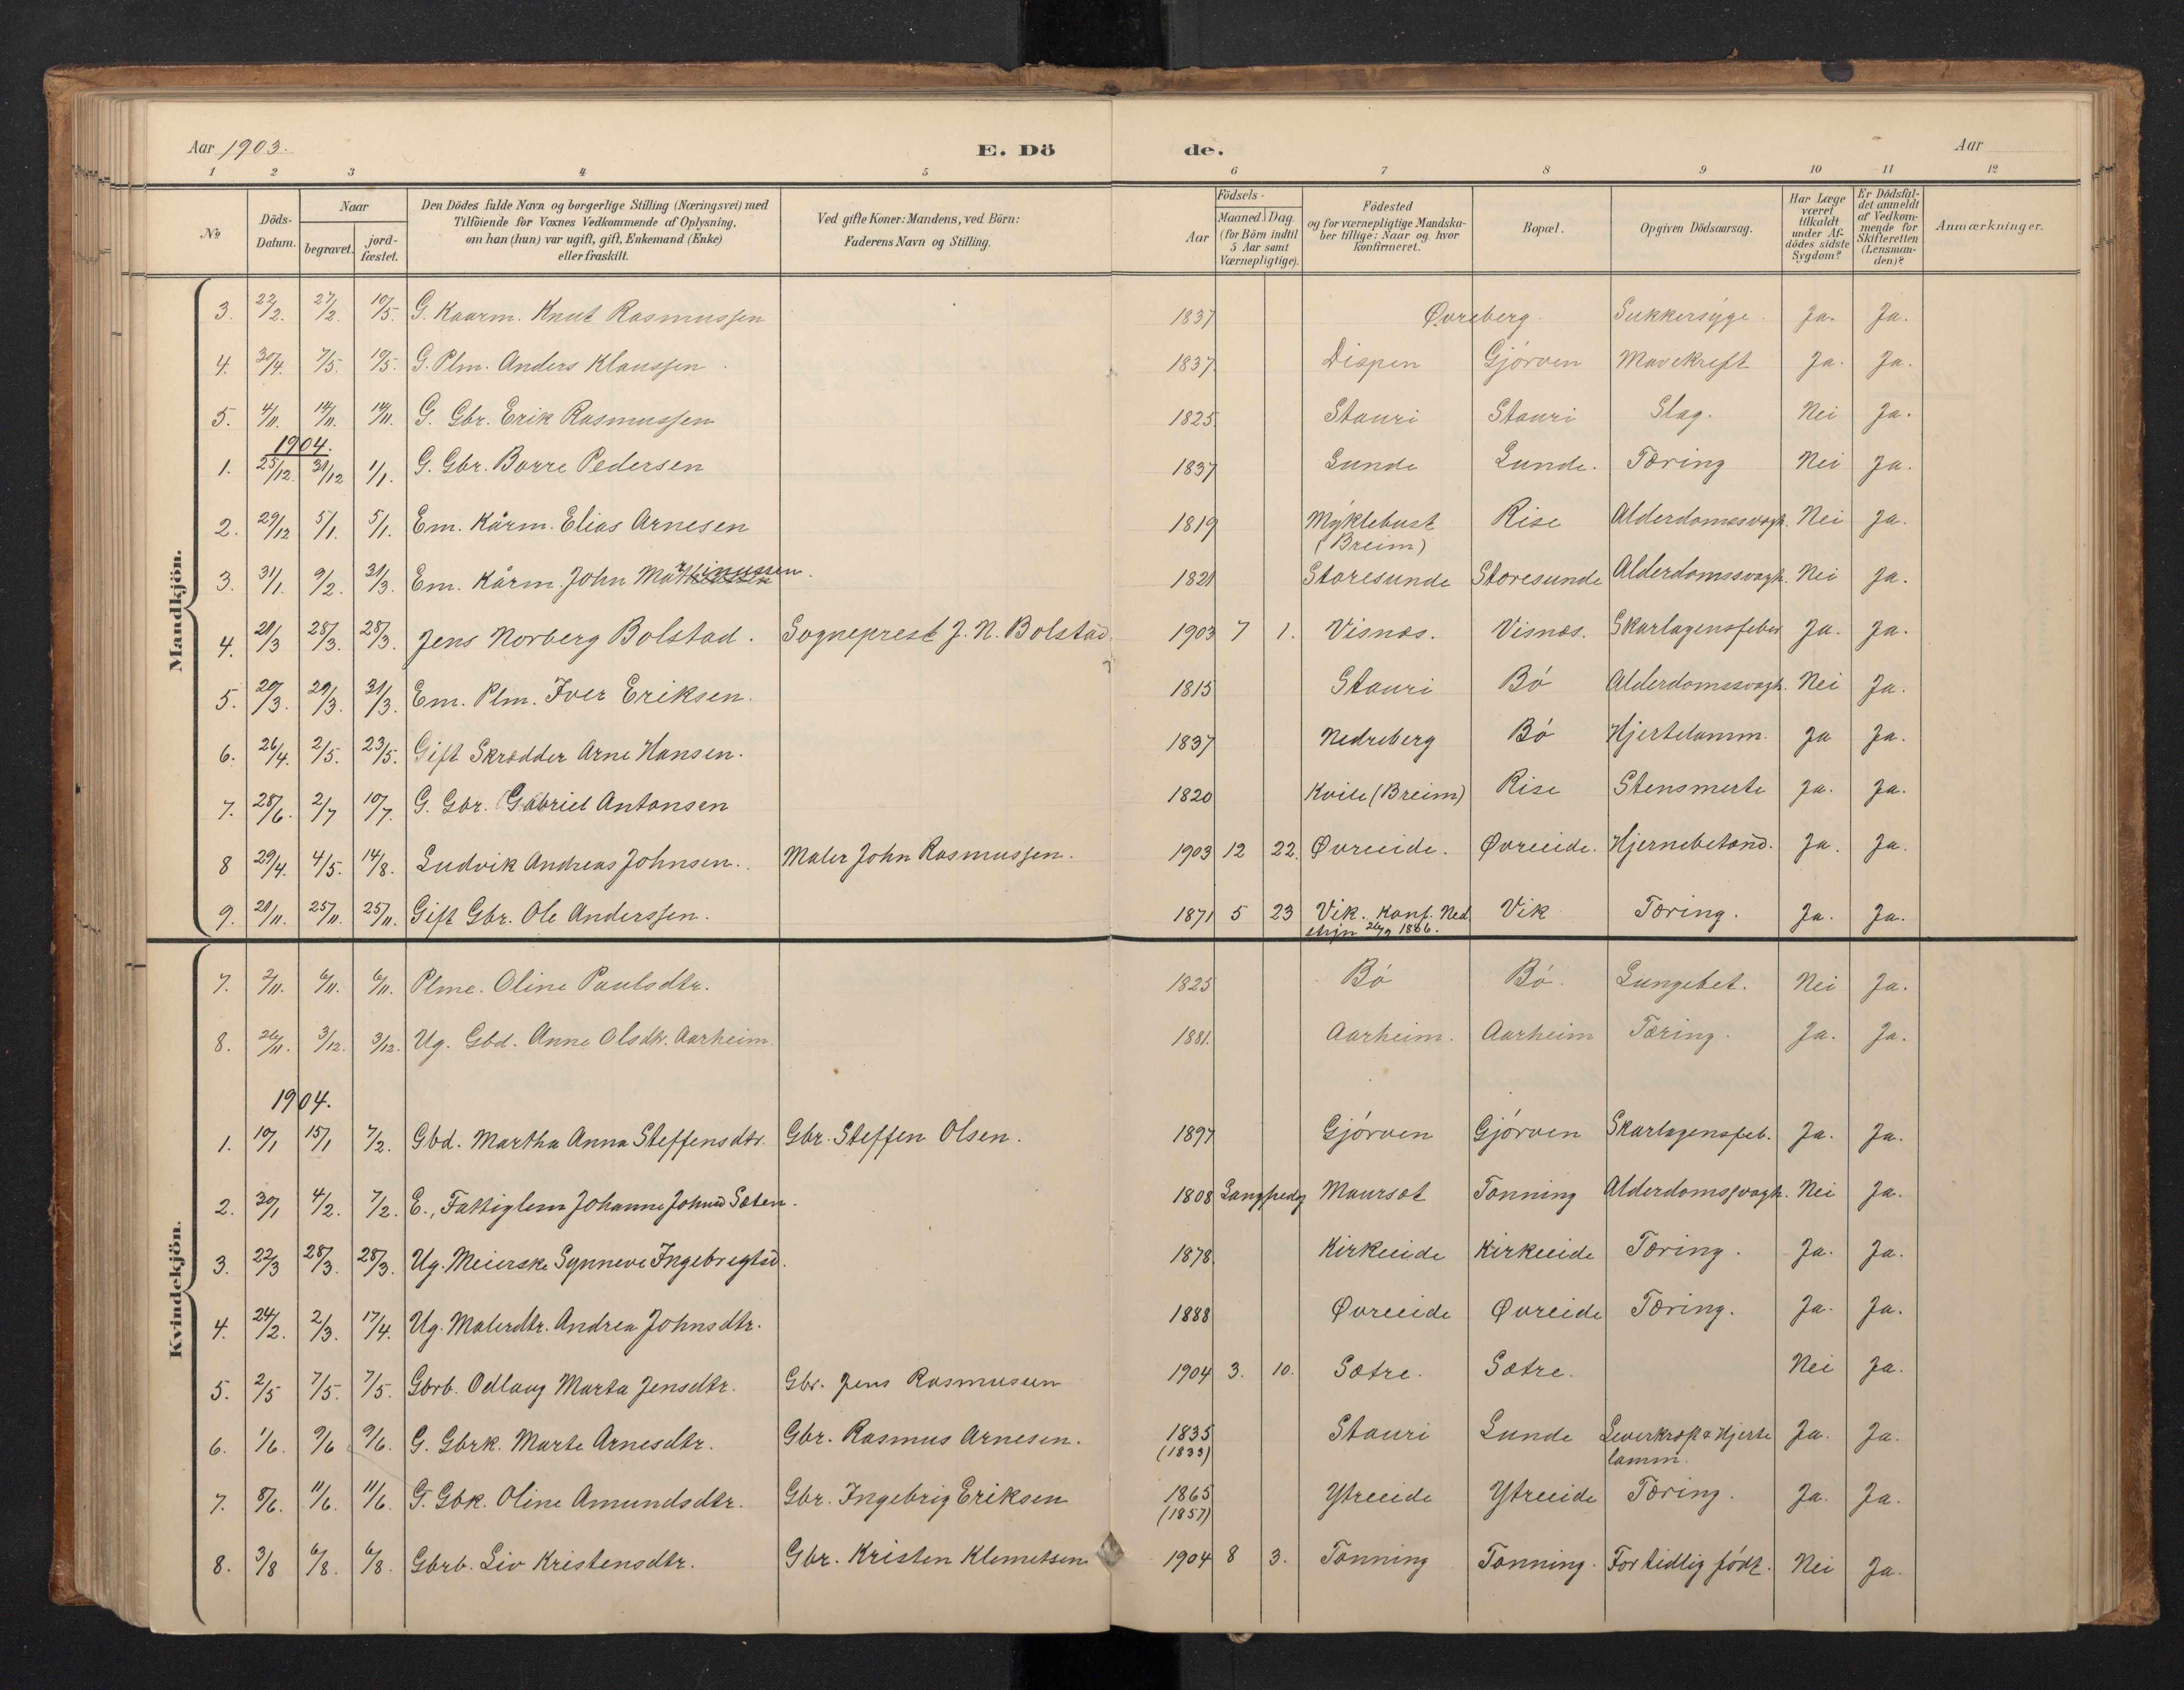 Aar 1903. E. Dö de. Aar
1 2 3 4 5 6 7 8 9 10 11 12
No Döds-Datum. Naar begravet. jord-fæstet. Den Dödes fulde Navn og borgerlige Stilling (Næringsvei) med Tilföiende for Voxnes Vedkommende af Oplysning, om han (hun) var ugift, gift, Enkemand (Enke) eller fraskilt. Ved gifte Koner: Mandens, ved Börn: Faderens Navn og Stilling. Aar Födsels- Maaned. Dag. (for Börn indtil 5 Aar samt Værnepligtige). Födested og for værnepligtige Mandskaber tillige: Naar og hvor konfirmeret. Bopæl. Opgiven Dödsaarsag. Har Læge været tilkaldt under Afdödes sidste Sygdom? Er Dödsfaldet anmeldt af Vedkommende for Skifteretten (Lensmanden)? Anmærkninger.
Mandkjön.
3. 22/2. 27/2. 10/5. G. Kaarm. Knut Rasmussen 1837 Øvreberg. Sukkersyge. Ja. Ja.
4. 30/4. 7/5. 10/5. G. Plm. Anders Klaussen 1837 Dispen Gjörven Mavekreft Ja. Ja.
5. 4/11. 14/11. 14/11. G. Gbr. Erik Rasmussen 1825. Stauri Stauri Slag. Nei Ja.
1904.
1. 25/12. 31/12 1/1. G. Gbr. Borre Pedersen 1837 Lunde Lunde. Tæring Nei Ja.
2. 29/12 5/1. 5/1. Em. Kårm. Elias Arnesen 1819 Myklebust Rise Alderdomssvagh. Nei Ja.
(Breim)
3. 31/1. 9/2. 31/3. Em. Kårm. John Mathinussen. 1821 Storesunde Storesunde Alderdomssvagh. Nei Ja.
4. 21/3 28/3. 28/3. Jens Norberg Bolstad. Sogneprest J. N. Bolstad. 1903 7 1. Visnæs. Visnæs. Skarlagensfeber Ja. Ja.
5. 20/3. 29/3. 31/3. Em. Plm. Iver Eriksen. 1815 Stauri Bö Alderdomssvagh. Nei Ja.
6. 26/4. 2/5. 23/5. Gift Skrædder Arne Hansen. 1837 Nedreberg Bö Hjertelamm. Ja Ja.
7. 28/6. 2/7 10/7. G. Gbr. Gabriel Antonsen 1820 Kvile (Breim) Rise Stensmerte Ja. Ja.
8 29/4. 4/5. 14/8. Ludvik Andreas Johnsen. Maler John Rasmussen. 1903 12 22. Øvreeide. Øvreeide. Hjernebetænd. Ja. Ja.
9. 21/11. 25/11. 25/11. Gift Gbr. Ole Anderssen. 1871 5 23 Vik. Konf. Ned Vik Tæring. Ja. Ja.
stryn 26/9 1886.
Kvindekjön.
7. 2/11. 6/11. 6/11. Plme. Oline Paulsdtr. 1825 Bö Bö. Lungebet. Nei Ja.
8. 26/11. 3/12. 3/12. Ug. Gbd. Anne Olsdtr. Aarheim. 1881. Aarheim. Aarheim Tæring. Ja. Ja.
1904.
1. 10/1 15/1 7/2. Gbd. Martha Anna Steffensdtr. Gbr. Steffen Olsen. 1897 Gjörven Gjörven Skarlagensfeb. Ja. Ja.
2. 30/1 4/2. 7/2. E., Fattiglem Johanne Johnsd Sæten. 1808 Langfredag Maurset Tonning Alderdomssvagh. Nei Ja.
3. 22/3 28/3. 28/3. Ug. Meierske Synneve Ingebrigtsd. 1878. Kirkeeide Kirkeeide Tæring. Ja. Ja.
4. 24/2. 2/3. 17/4. Ug. Malerdtr. Andrea Johnsdtr. 1888 Øvreeide Øvreeide Tæring. Ja. Ja.
5. 2/5 7/5. 7/5. Gbrb. Odlaug Marta Jensdtr. Gbr. Jens Rasmussen 1904 3. 10. Sætre. Sætre. Nei Ja.
6. 1/6. 9/6 9/6. G. Gbrk. Marte Arnesdtr. Gbr. Rasmus Arnesen. 1835 Stauri Lunde Leverkræft & Hjerte Ja. Ja.
(1833) lamm.
7. 8/6. 11/6. 11/6. G. Gbk. Oline Amundsdtr. Gbr. Ingebrig Eriksen 1865 Ytreeide Ytreeide Tæring. Ja. Ja.
(1857)
8. 3/8 6/8. 6/8. Gbrb. Liv Kristensdtr. Gbr. Kristen Klemetsen 1904 8 3. Tonning Tonning. For tidlig födt. Nei Ja.